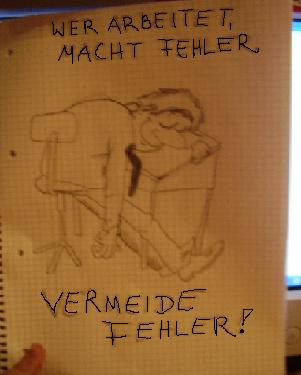 WER ARBEITET,
MACHT FEHLER
VERMEIDE
FEHLER!